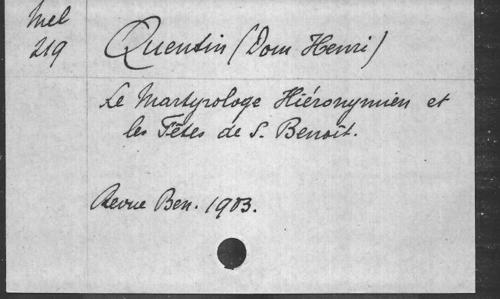 Mel
219
Quentin (Dom Henri)
Le Martyrologe Hiéronymien et
les Fêtes de S. Benoît.
Revue Ben. 1903.